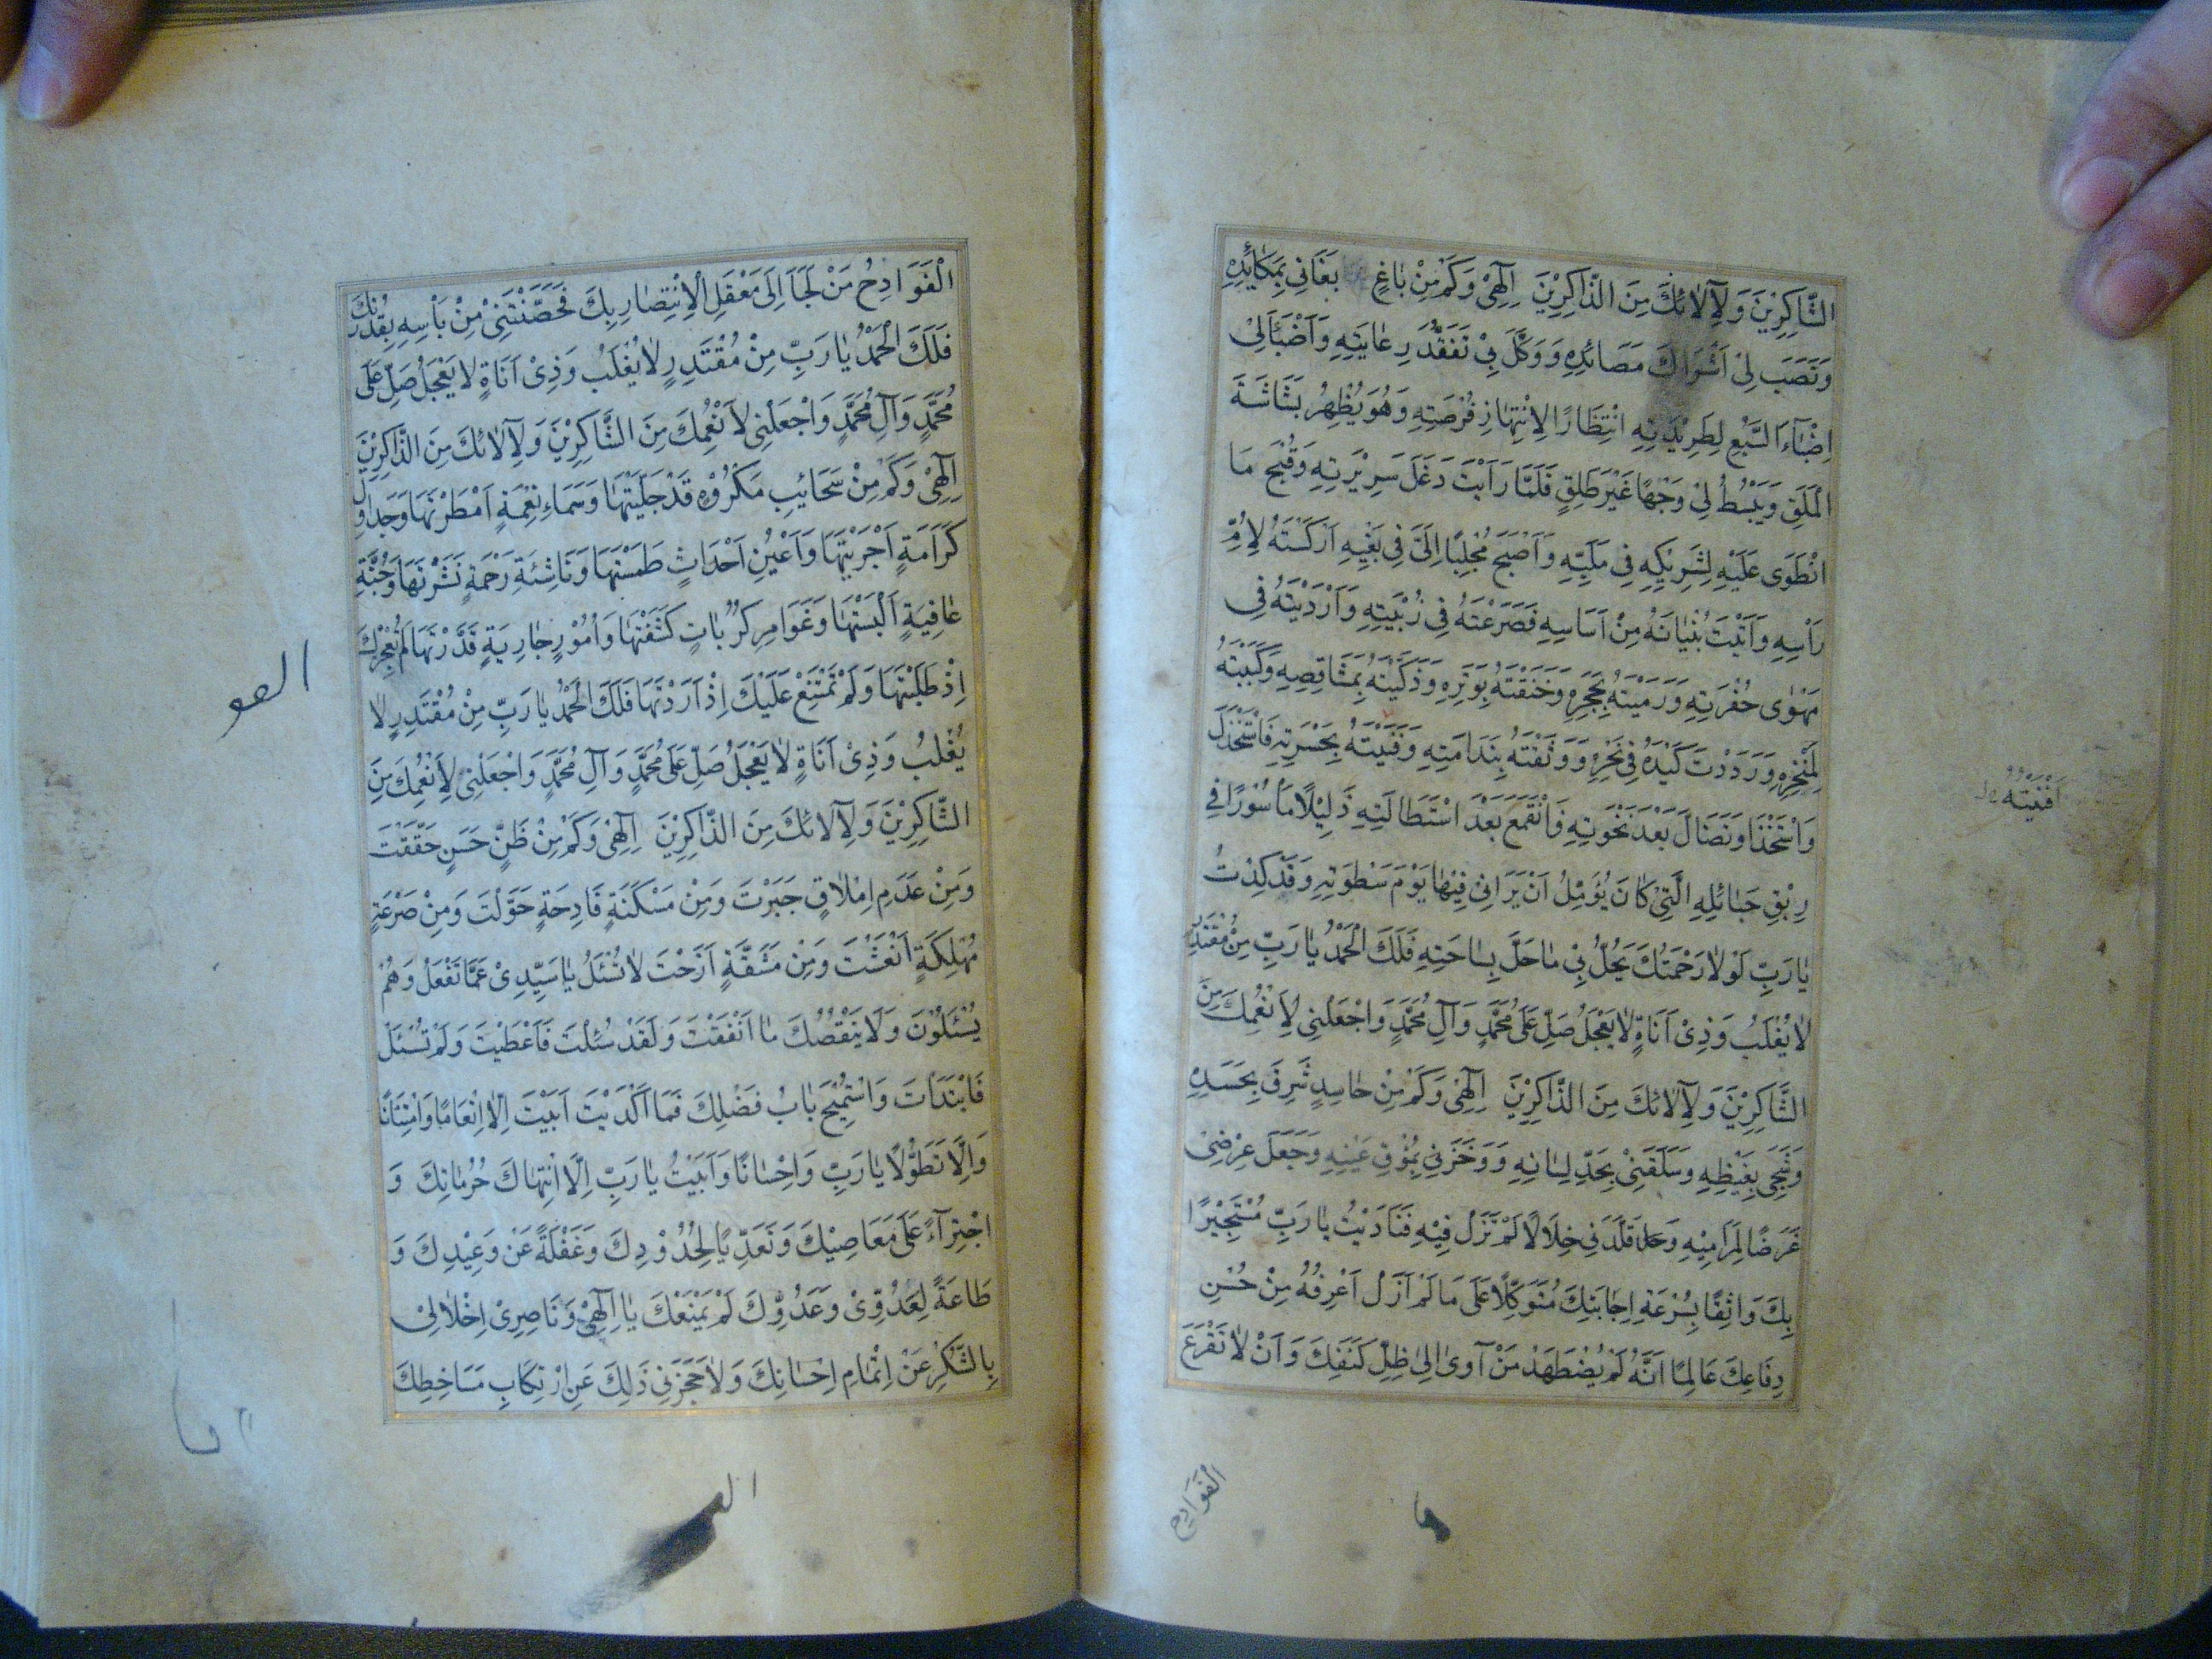 الشَّاكِرِيْنَ وَلِآلَائِكَ مِنَ الذَّاكِرِيْنَ اِلٰهِىْ وَكَمْ مِنْ بَاغٍ بَغَانِى بِمَكَائِدِهِ
وَنَصَبَ لِىْ اَشْرَاكَ مَصَائِدِهِ وَوَكَّلَ بِىْ تَفَقُّدَ رِعَايَتِهِ وَاَضْبَأَ اِلَىَّ
اِضْبَاءَ السَّبُعِ لِطَرِيْدَتِهِ انْتِظَارًا لِانْتِهَازِ فُرْصَتِهِ وَهُوَ يُظْهِرُ بَشَاشَةَ
الْمَلَقِ وَيَبْسُطُ لِىْ وَجْهًا غَيْرَ طَلِقٍ فَلَمَّا رَاَيْتَ دَغَلَ سَرِيْرَتِهِ وَقُبْحَ مَا
انْطَوَى عَلَيْهِ لِشَرِيْكِهِ فِى مِلَّتِهِ وَاَصْبَحَ مُجْلِبًا اِلَىَّ فِى بَغْيِهِ اَرْكَسْتَهُ لِاُمِّ
رَاْسِهِ وَاَتَيْتَ بُنْيَانَهُ مِنْ اَسَاسِهِ فَصَرَعْتَهُ فِى زُبْيَتِهِ وَاَرْدَيْتَهُ فِى
مَهْوٰى حُفْرَتِهِ وَرَمَيْتَهُ بِحَجَرِهِ وَخَنَقْتَهُ بِوَتَرِهِ وَذَكَّيْتَهُ بِمَشَاقِصِهِ وَكَبَبْتَهُ
لِمَنْخِرِهِ وَرَدَدْتَ كَيْدَهُ فِى نَحْرِهِ وَوَثَقْتَهُ بِنَدَامَتِهِ وَفَنَيْتَهُ بِحَسْرَتِهِ فَاسْتَخْذَلَ
وَاسْتَخْذَا وَتَضَالَ بَعْدَ نَخْوَتِهِ فَانْقَمَعَ بَعْدَ اسْتِطَالَتِهِ ذَلِيْلًا مَاْسُوْرًا فِى
رِبْقِ حَبَائِلِهِ الَّتِىْ كَانَ يُؤَمِّلُ اَنْ يَرَانِى فِيْهَا يَوْمَ سَطْوَتِهِ وَقَدْ كِدْتُ
يَا رَبِّ لَوْلَا رَحْمَتُكَ يَحُلُّ بِىْ مَا حَلَّ بِسَاحَتِهِ فَلَكَ الْحَمْدُ يَا رَبِّ مِنْ مُقْتَدِرٍ
لَا يُغْلَبُ وَذِىْ اَنَاةٍ لَا يَعْجَلُ صَلِّ عَلَى مُحَمَّدٍ وَآلِ مُحَمَّدٍ وَاجْعَلْنِى لِاَنْعُمِكَ مِنَ
الشَّاكِرِيْنَ وَلِآلَائِكَ مِنَ الذَّاكِرِيْنَ اِلٰهِىْ وَكَمْ مِنْ حَاسِدٍ شَرِقَ بِحَسَدِهِ
وَشَجِىَ بِغَيْظِهِ وَسَلَقَنِىْ بِحَدِّ لِسَانِهِ وَوَخَزَنِى بِمُوْقِ عَيْنِهِ وَجَعَلَ عِرْضِىْ
غَرَضًا لِمَرَامِيْهِ وَقَلَّدَنِى خِلَالًا لَمْ تَزَلْ فِيْهِ فَنَادَيْتُ يَا رَبِّ مُسْتَجِيْرًا
بِكَ وَاثِقًا بِسُرْعَةِ اِجَابَتِكَ مُتَوَكِّلًا عَلَى مَا لَمْ اَزَلْ اَعْرِفُهُ مِنْ حُسْنِ
دِفَاعِكَ عَالِمًا اَنَّهُ لَمْ يُضْطَهَدْ مَنْ آوىٰ اِلىٰ ظِلِّ كَنَفِكَ وَاَنْ لَا تَقْرَعَ
الْفَوَادِح
اَفْنَيْتَهُ
الْفَوَادِحُ مَنْ لَجَاَ اِلَى مَعْقَلِ الْاِنْتِصَارِ بِكَ فَحَصَّنْتَنِىْ مِنْ بَاْسِهِ بِقُدْرَتِكَ
فَلَكَ الْحَمْدُ يَا رَبِّ مِنْ مُقْتَدِرٍ لَا يُغْلَبُ وَذِىْ اَنَاةٍ لَا يَعْجَلُ صَلِّ عَلَى
مُحَمَّدٍ وَآلِ مُحَمَّدٍ وَاجْعَلْنِى لِاَنْعُمِكَ مِنَ الشَّاكِرِيْنَ وَلِآلَائِكَ مِنَ الذَّاكِرِيْنَ
اِلٰهِىْ وَكَمْ مِنْ سَحَائِبِ مَكْرُوْهٍ قَدْ جَلَيْتَهَا وَسَمَاءِ نِعْمَةٍ اَمْطَرْتَهَا وَجَدَاوِلِ
كَرَامَةٍ اَجْرَيْتَهَا وَاَعْيُنِ اَحْدَاثٍ طَمَسْتَهَا وَنَاشِئَةِ رَحْمَةٍ نَشَرْتَهَا وَجُنَّةِ
عَافِيَةٍ اَلْبَسْتَهَا وَغَوَامِرِ كُرُبَاتٍ كَشَفْتَهَا وَاُمُوْرٍ جَارِيَةٍ قَدَّرْتَهَا لَمْ تُعْجِزْكَ
اِذْ طَلَبْتَهَا وَلَمْ تَمْتَنِعْ عَلَيْكَ اِذْ اَرَدْتَهَا فَلَكَ الْحَمْدُ يَا رَبِّ مِنْ مُقْتَدِرٍ لَا
يُغْلَبُ وَذِىْ اَنَاةٍ لَا يَعْجَلُ صَلِّ عَلَى مُحَمَّدٍ وَآلِ مُحَمَّدٍ وَاجْعَلْنِى لِاَنْعُمِكَ مِنَ
الشَّاكِرِيْنَ وَلِآلَائِكَ مِنَ الذَّاكِرِيْنَ اِلٰهِىْ وَكَمْ مِنْ ظَنٍّ حَسَنٍ حَقَّقْتَ
وَمِنْ عَدَمِ اِمْلَاقٍ جَبَرْتَ وَمِنْ مَسْكَنَةٍ فَادِحَةٍ حَوَّلْتَ وَمِنْ صَرْعَةٍ
مُهْلِكَةٍ اَنْعَشْتَ وَمِنْ مَشَقَّةٍ اَزَحْتَ لَا تُسْئَلُ يَا سَيِّدِىْ عَمَّا تَفْعَلُ وَهُمْ
يُسْئَلُوْنَ وَلَا يَنْقُصُكَ مَا اَنْفَقْتَ وَلَقَدْ سُئِلْتَ فَاَعْطَيْتَ وَلَمْ تُسْئَلْ
فَابْتَدَاْتَ وَاسْتُمِيْحَ بَابُ فَضْلِكَ فَمَا اَكْدَيْتَ اَبَيْتَ اِلَّا اِنْعَامًا وَامْتِنَانًا
وَاِلَّا تَطَوُّلًا يَا رَبِّ وَاِحْسَانًا وَاَبَيْتُ يَا رَبِّ اِلَّا انْتِهَاكَ حُرُمَاتِكَ وَ
اجْتِرَآءً عَلَى مَعَاصِيْكَ وَتَعَدِّيًا لِحُدُوْدِكَ وَغَفْلَةً عَنْ وَعِيْدِكَ وَ
طَاعَةً لِعَدُوِّىْ وَعَدُوِّكَ لَمْ يَمْنَعْكَ يَا اِلٰهِىْ وَنَاصِرِىْ اِخْلَالِىْ
بِالشُّكْرِ عَنْ اِتْمَامِ اِحْسَانِكَ وَلَا حَجَزَنِى ذَلِكَ عَنِ ارْتِكَابِ مَسَاخِطِكَ